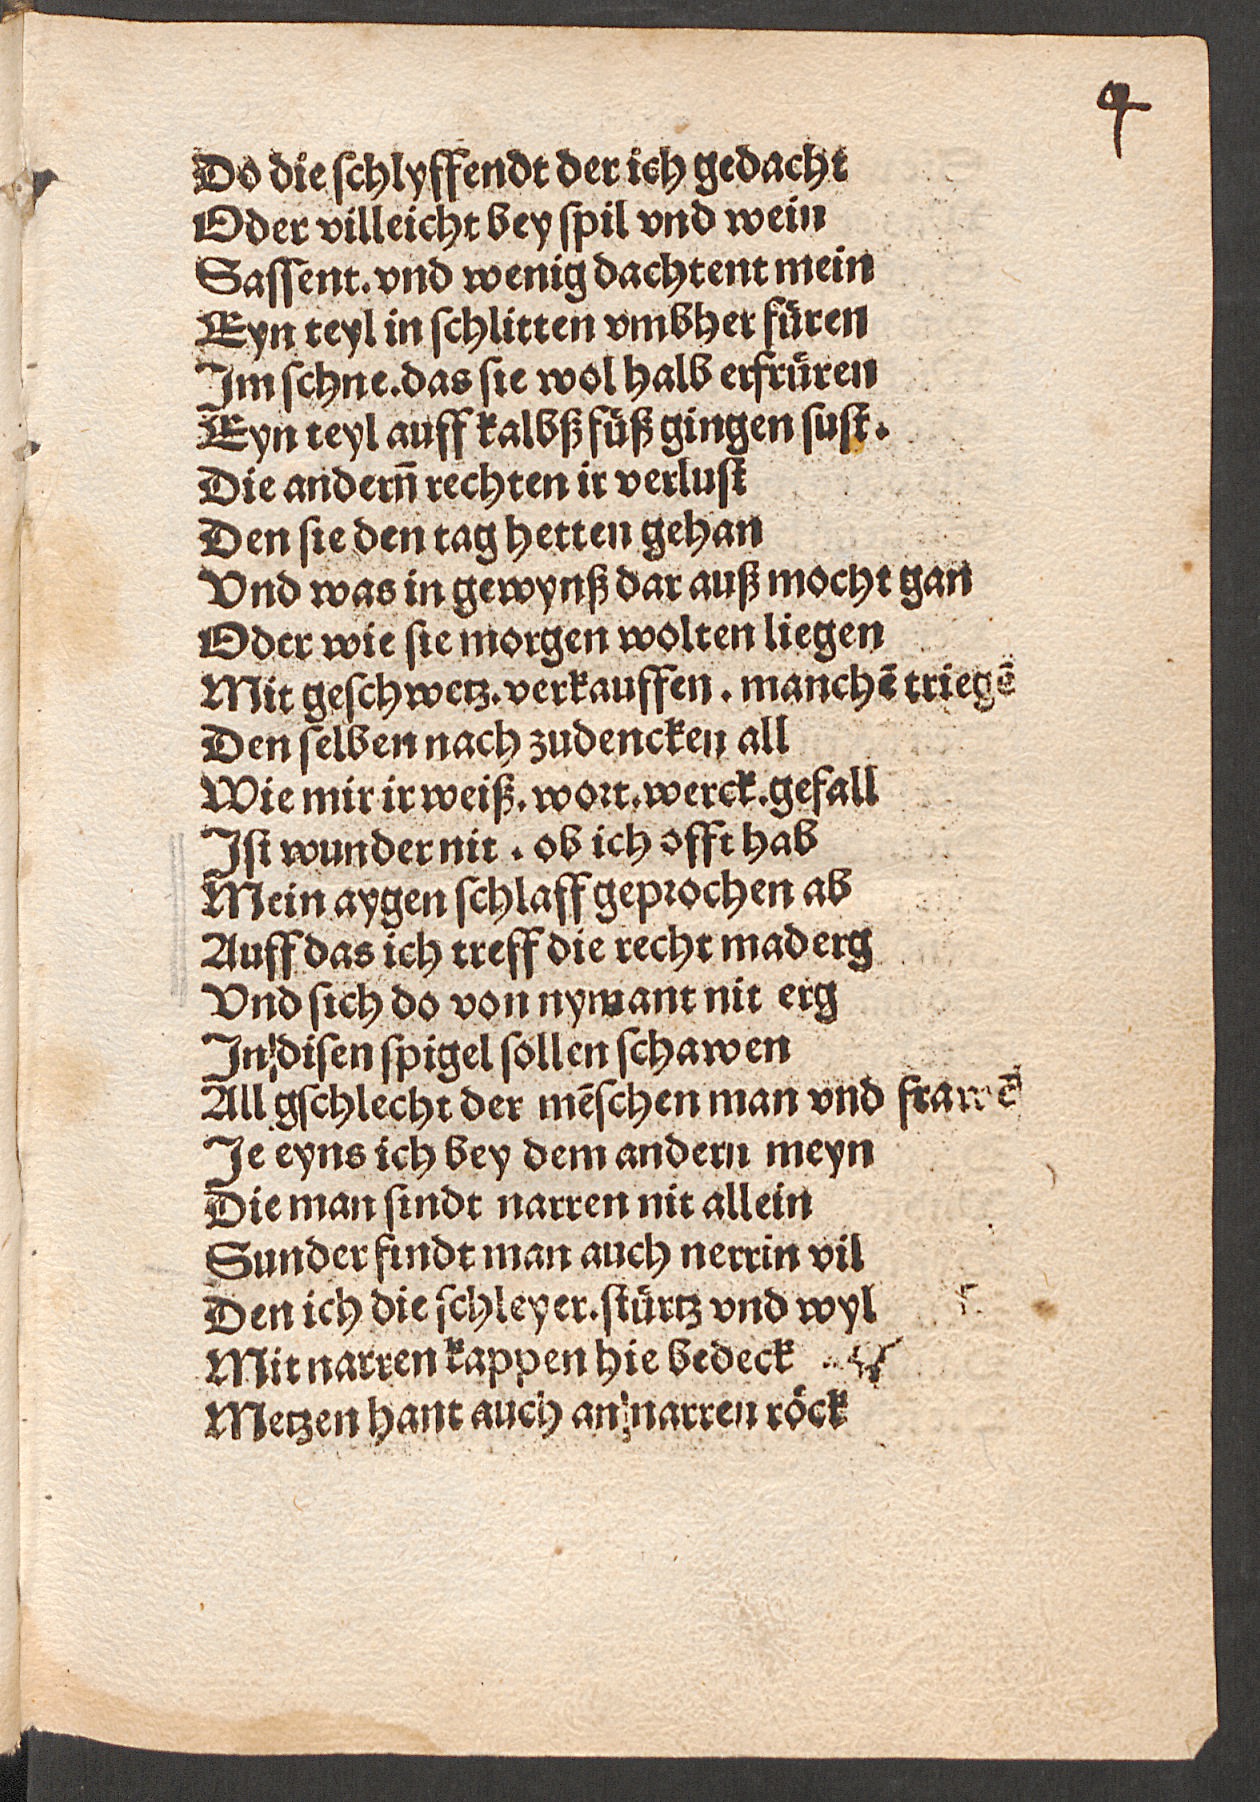 4
Do die ſchlyffendt der ich gedacht
Oder villeicht bey ſpil vnd wein
Saſſent. vnd wenig dachtent mein
Eyn teyl in ſchlitten vmbher fuͤren
Im ſchne. das ſie wol halb erfruͤren
Eyn teyl auff kalbß fuͤß gingen ſuſt.
Die andern̄ rechten ir verluſt
Den ſie den tag hetten gehan
Vnd was in gewynß dar auß mocht gan
Oder wie ſie morgen wolten liegen
Mit geſchwetz. verkauffen. manchē triegē
Den ſelben nach zudencken all
Wie mir ir weiß. wort. werck. gefall
Iſt wunder nit. ob ich offt hab
Mein aygen ſchlaff geprochen ab
Auff das ich treff die recht maderg
Vnd ſich do von nymant nit erg
In diſen ſpigel ſollen ſchawen
All gſchlecht der mēſchen man vnd frawē
Je eyns ich bey dem andern meyn
Die man ſindt narren nit allein
Sunder findt man auch nerrin vil
Den ich die ſchleyer. ſtuͤrtz vnd wyl
Mit narren kappen hie bedeck
Metzen hant auch an narren roͤck